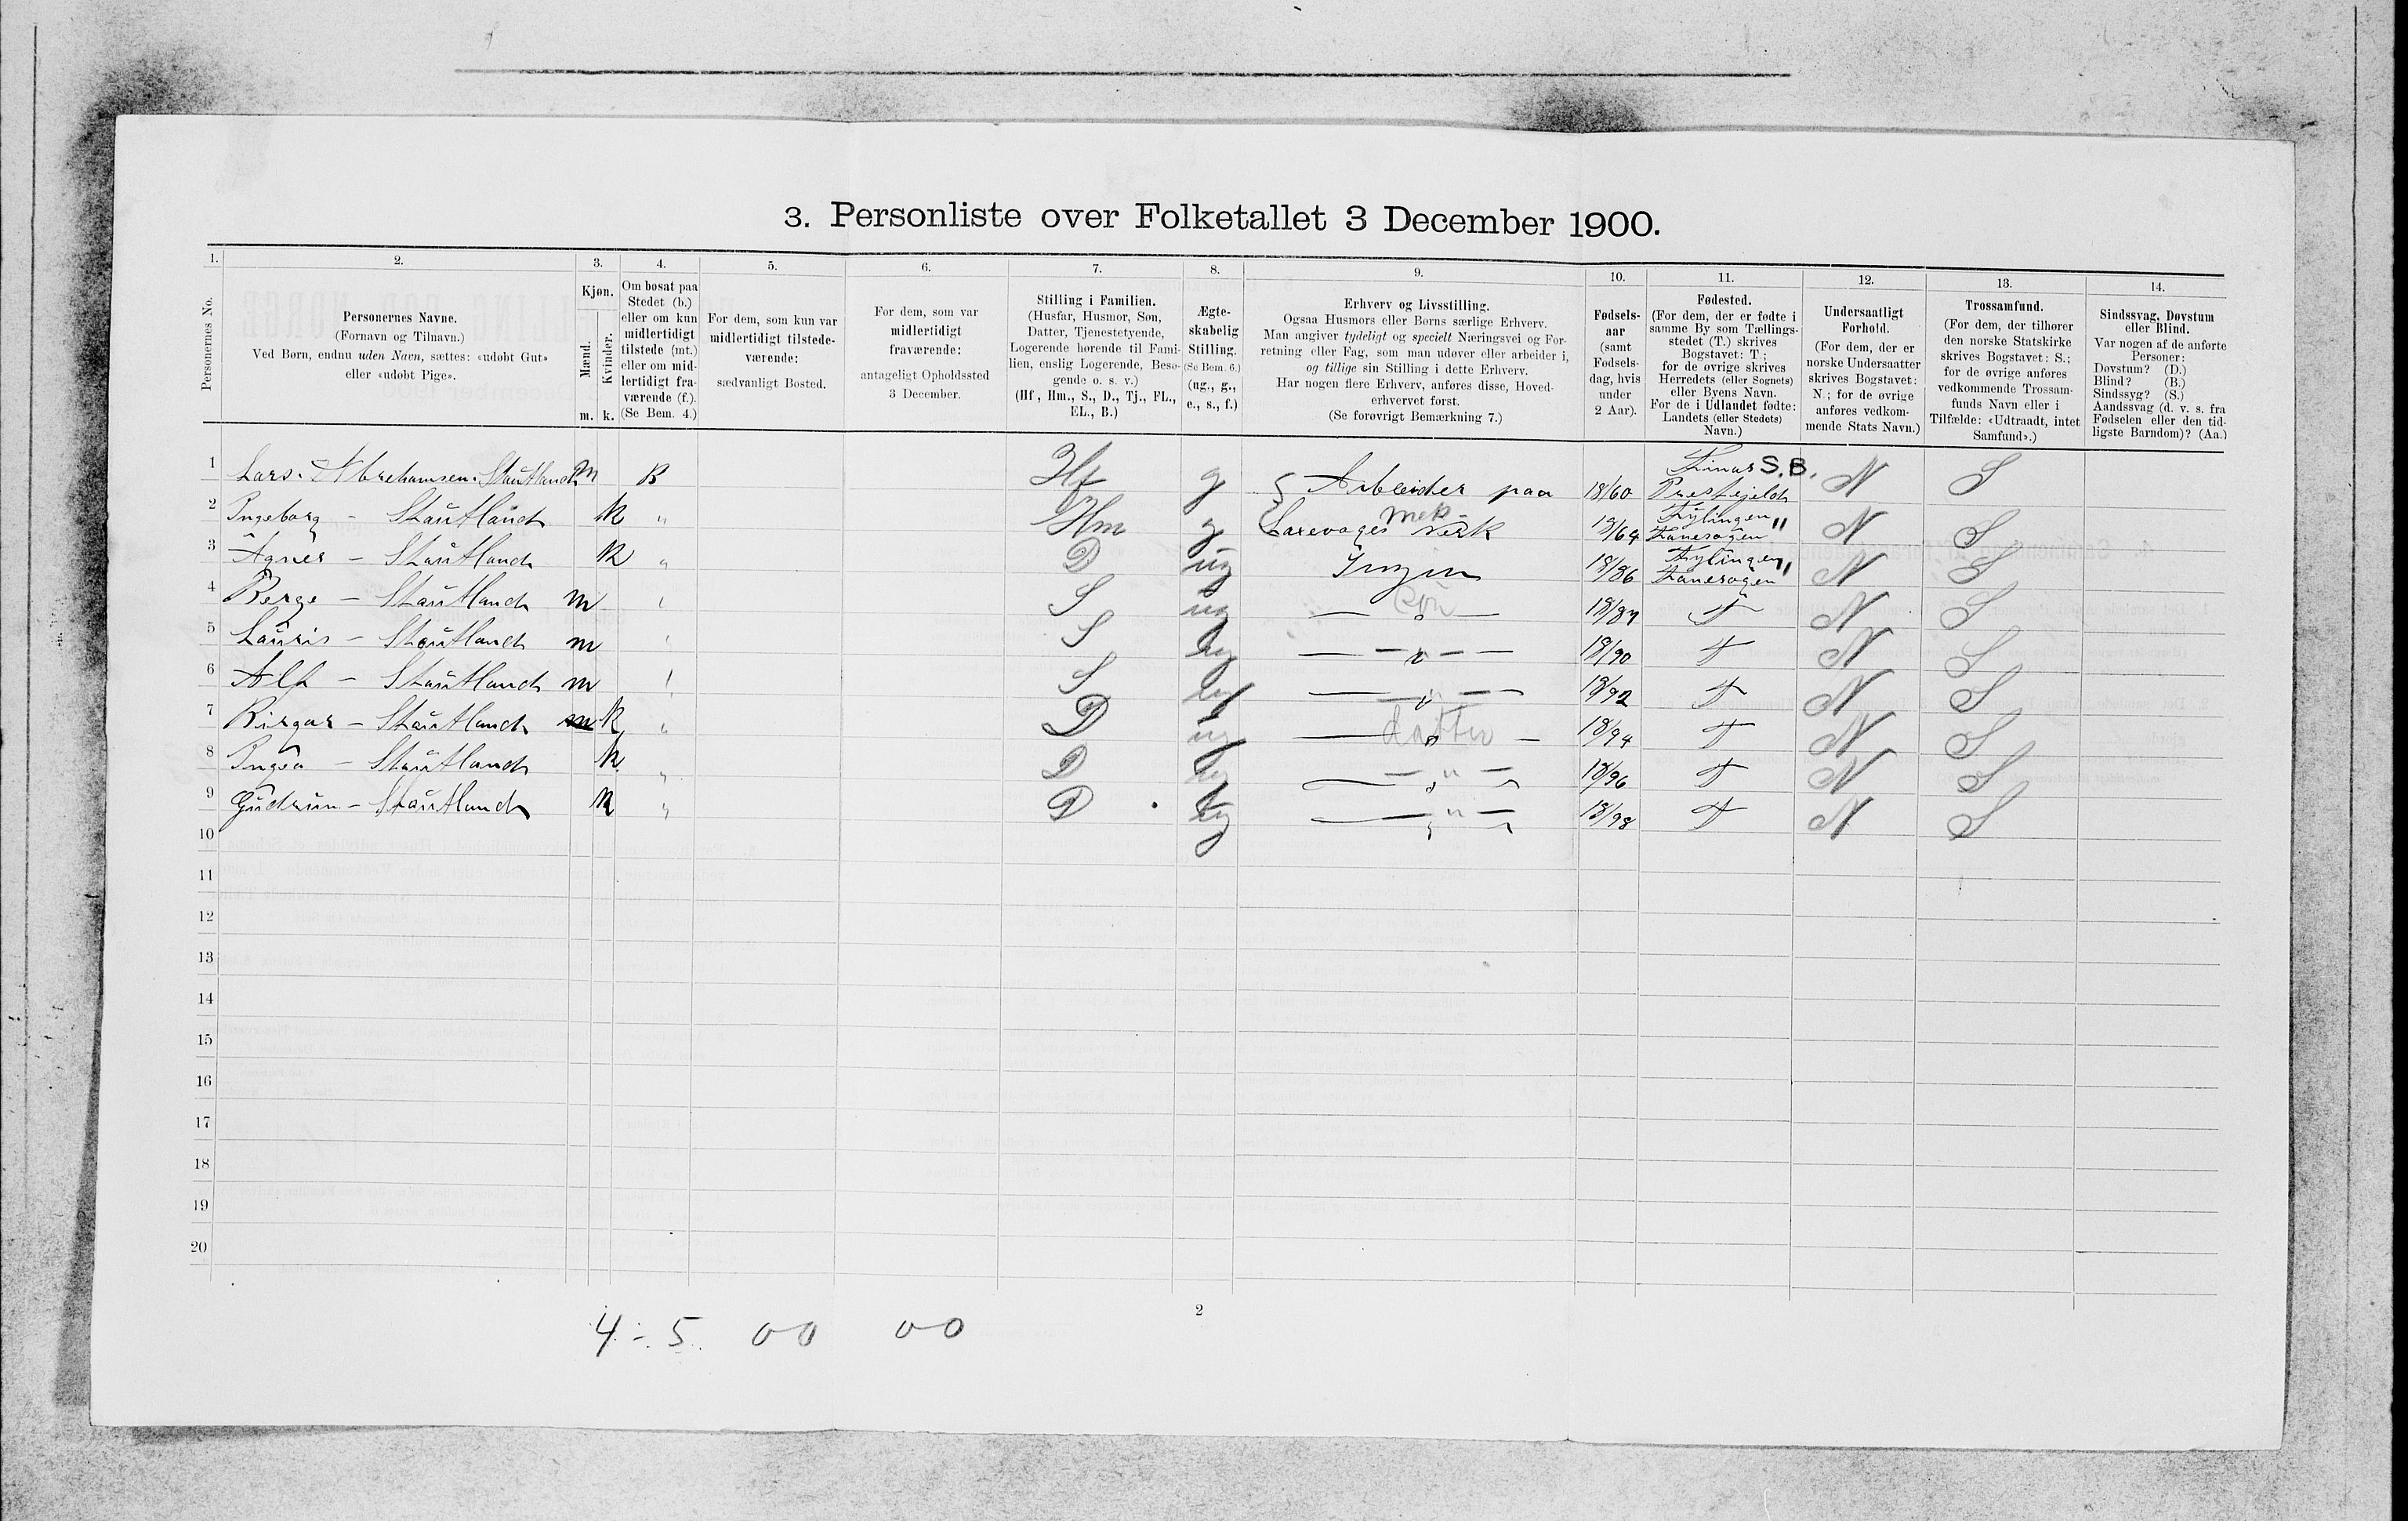 3. Personliste over Folketallet 3 December 1900.
1. 2. 3. 4. 5. 6. 7. 8. 9. 10. 11. 12. 13. 14.
Personernes No.
Personernes Navne.
(Fornavn og Tilnavn.)
Ved Børn, endnu uden Navn, sættes: «udøbt Gut»
eller «udøbt Pige».
Kjøn.
Mænd.
Kvinder.
m. k.
Om bosat paa
Stedet (b.)
eller om kun
midlertidigt
tilstede (mt.)
eller om mid-
lertidigt fra-
værende (f.).
(Se Bem. 4.)
For dem, som kun var
midlertidigt tilstede-
værende:
sædvanligt Bosted.
For dem, som var
midlertidigt
fraværende:
antageligt Opholdssted
3 December.
Stilling i Familien.
(Husfar, Husmor, Søn,
Datter, Tjenestetyende,
Logerende hørende til Fami-
lien, enslig Logerende, Besø-
gende o. s. v.)
(Hf, Hm., S., D., Tj., FL.,
EL., B.)
Ægte-
skabelig
Stilling.
(Se Bem. 6.)
(ug., g.,
e., s., f.)
Erhverv og Livsstilling.
Ogsaa Husmors eller Børns særlige Erhverv.
Man angiver tydeligt og specielt Næringsvei og For-
retning eller Fag, som man udøver eller arbeider i,
og tillige sin Stilling i dette Erhverv.
Har nogen flere Erhverv, anføres disse, Hoved-
erhvervet først.
(Se forøvrigt Bemærkning 7.)
Fødsels-
aar
(samt
Fødsels-
dag, hvis
under
2 Aar).
Fødested.
(For dem, der er fødte i
samme By som Tællings-
stedet (T.) skrives
Bogstavet: T.;
for de øvrige skrives
Herredets (eller Sognets)
eller Byens Navn.
For de i Udlandet fødte:
Landets (eller Stedets)
Navn.)
Undersaatligt
Forhold.
(For dem, der er
norske Undersaatter
skrives Bogstavet:
N.; for de øvrige
anføres vedkom-
mende Stats Navn.)
Trossamfund.
(For dem, der tilhører
den norske Statskirke
skrives Bogstavet: S.;
for de øvrige anføres
vedkommende Trossam-
funds Navn eller i
Tilfælde: «Udtraadt, intet
Samfund».)
Sindssvag, Døvstum
eller Blind.
Var nogen af de anførte
Personer:
Døvstum? (D.)
Blind? (B.)
Sindssyg? (S.)
Aandssvag (d. v. s. fra
Fødselen eller den tid-
ligste Barndom)? (Aa.)
1 Lars. Abrehamsen. Stautland m B Hf g Arbeider paa 18/60 S.B. N S
2 Ingeborg - Stautland k " Hm g Laxevages mek. verk 18/64 " N S
3 Agnes - Stautland k " D ug Ingen 18/86 " N S
4 Berge - Stautland m " S ug — " — Søn 18/87 T N S
5 Lauris - Stautland m " S ug — " — 18/90 T N S
6 Alf - Stautland m " S ug — " — 18/92 T N S
7 Birgar - Stautland m k " D ug — " — datter 18/94 T N S
8 Inga - Stautland k " D ug — " — 18/96 T N S
9 Gudrun - Stautland k " D ug — " — 18/98 T N S
10
11
12
13
14
15
16
17
18
19
20
2
4 - 5. 00 00